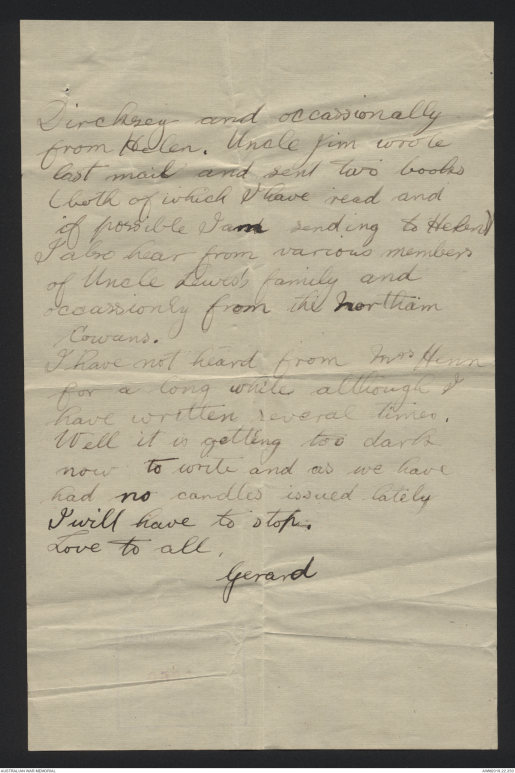 Dircksey and occassionally
from Helen. Uncle Jim wrote
last mail and sent two books
(both of which I have read and
if possible I am sending to Helen)
I also hear from various members
of Uncle Lewis's family and
occassionly from the Northam
Cowans.
I have not heard from Mrs Hinn
for a long while although I
have written several times.
Well it is getting too dark
now to write and as we have
had no candles issued lately
I will have to stop.
Love to all,
Gerard
AUSTRALIAN WAR MEMORIAL